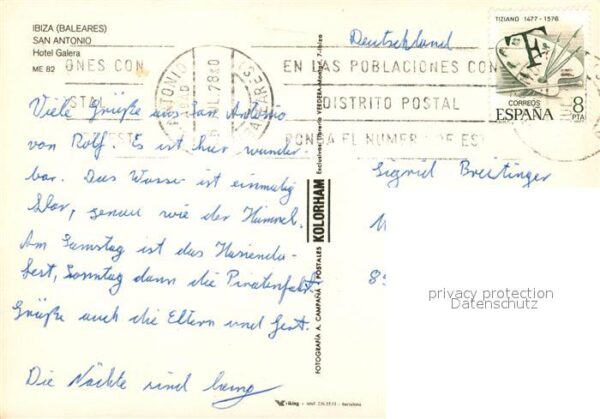 IBIZA (BALEARES)
SAN ANTONIO
Hotel Galera
ME 82
Viele Grüße aus San Antonio
von Rolf. Es ist hier wunder-
bar. Das Wasser ist einmalig
klar, genau wie der Himmel.
Am Samstag ist das Hacienda-
fest, Sonntag dann die Piratenfahrt.
Grüße auch die Eltern und Gert.
Die Nächte sind lang
FOTOGRAFIA A. CAMPAÑA
POSTALES KOLORHAM
Exclusivas Libreria
Viking
Barcelona
Deutschland
TIZIANO 1477 - 1576
CORREOS
ESPAÑA
8 PTA
ONES CON
STAL
ANTONIO
EN LAS POBLACIONES CON
DISTRITO POSTAL
PONGA EL NUMERO DE ES
Sigrid Breitinger
privacy protection
Datenschutz